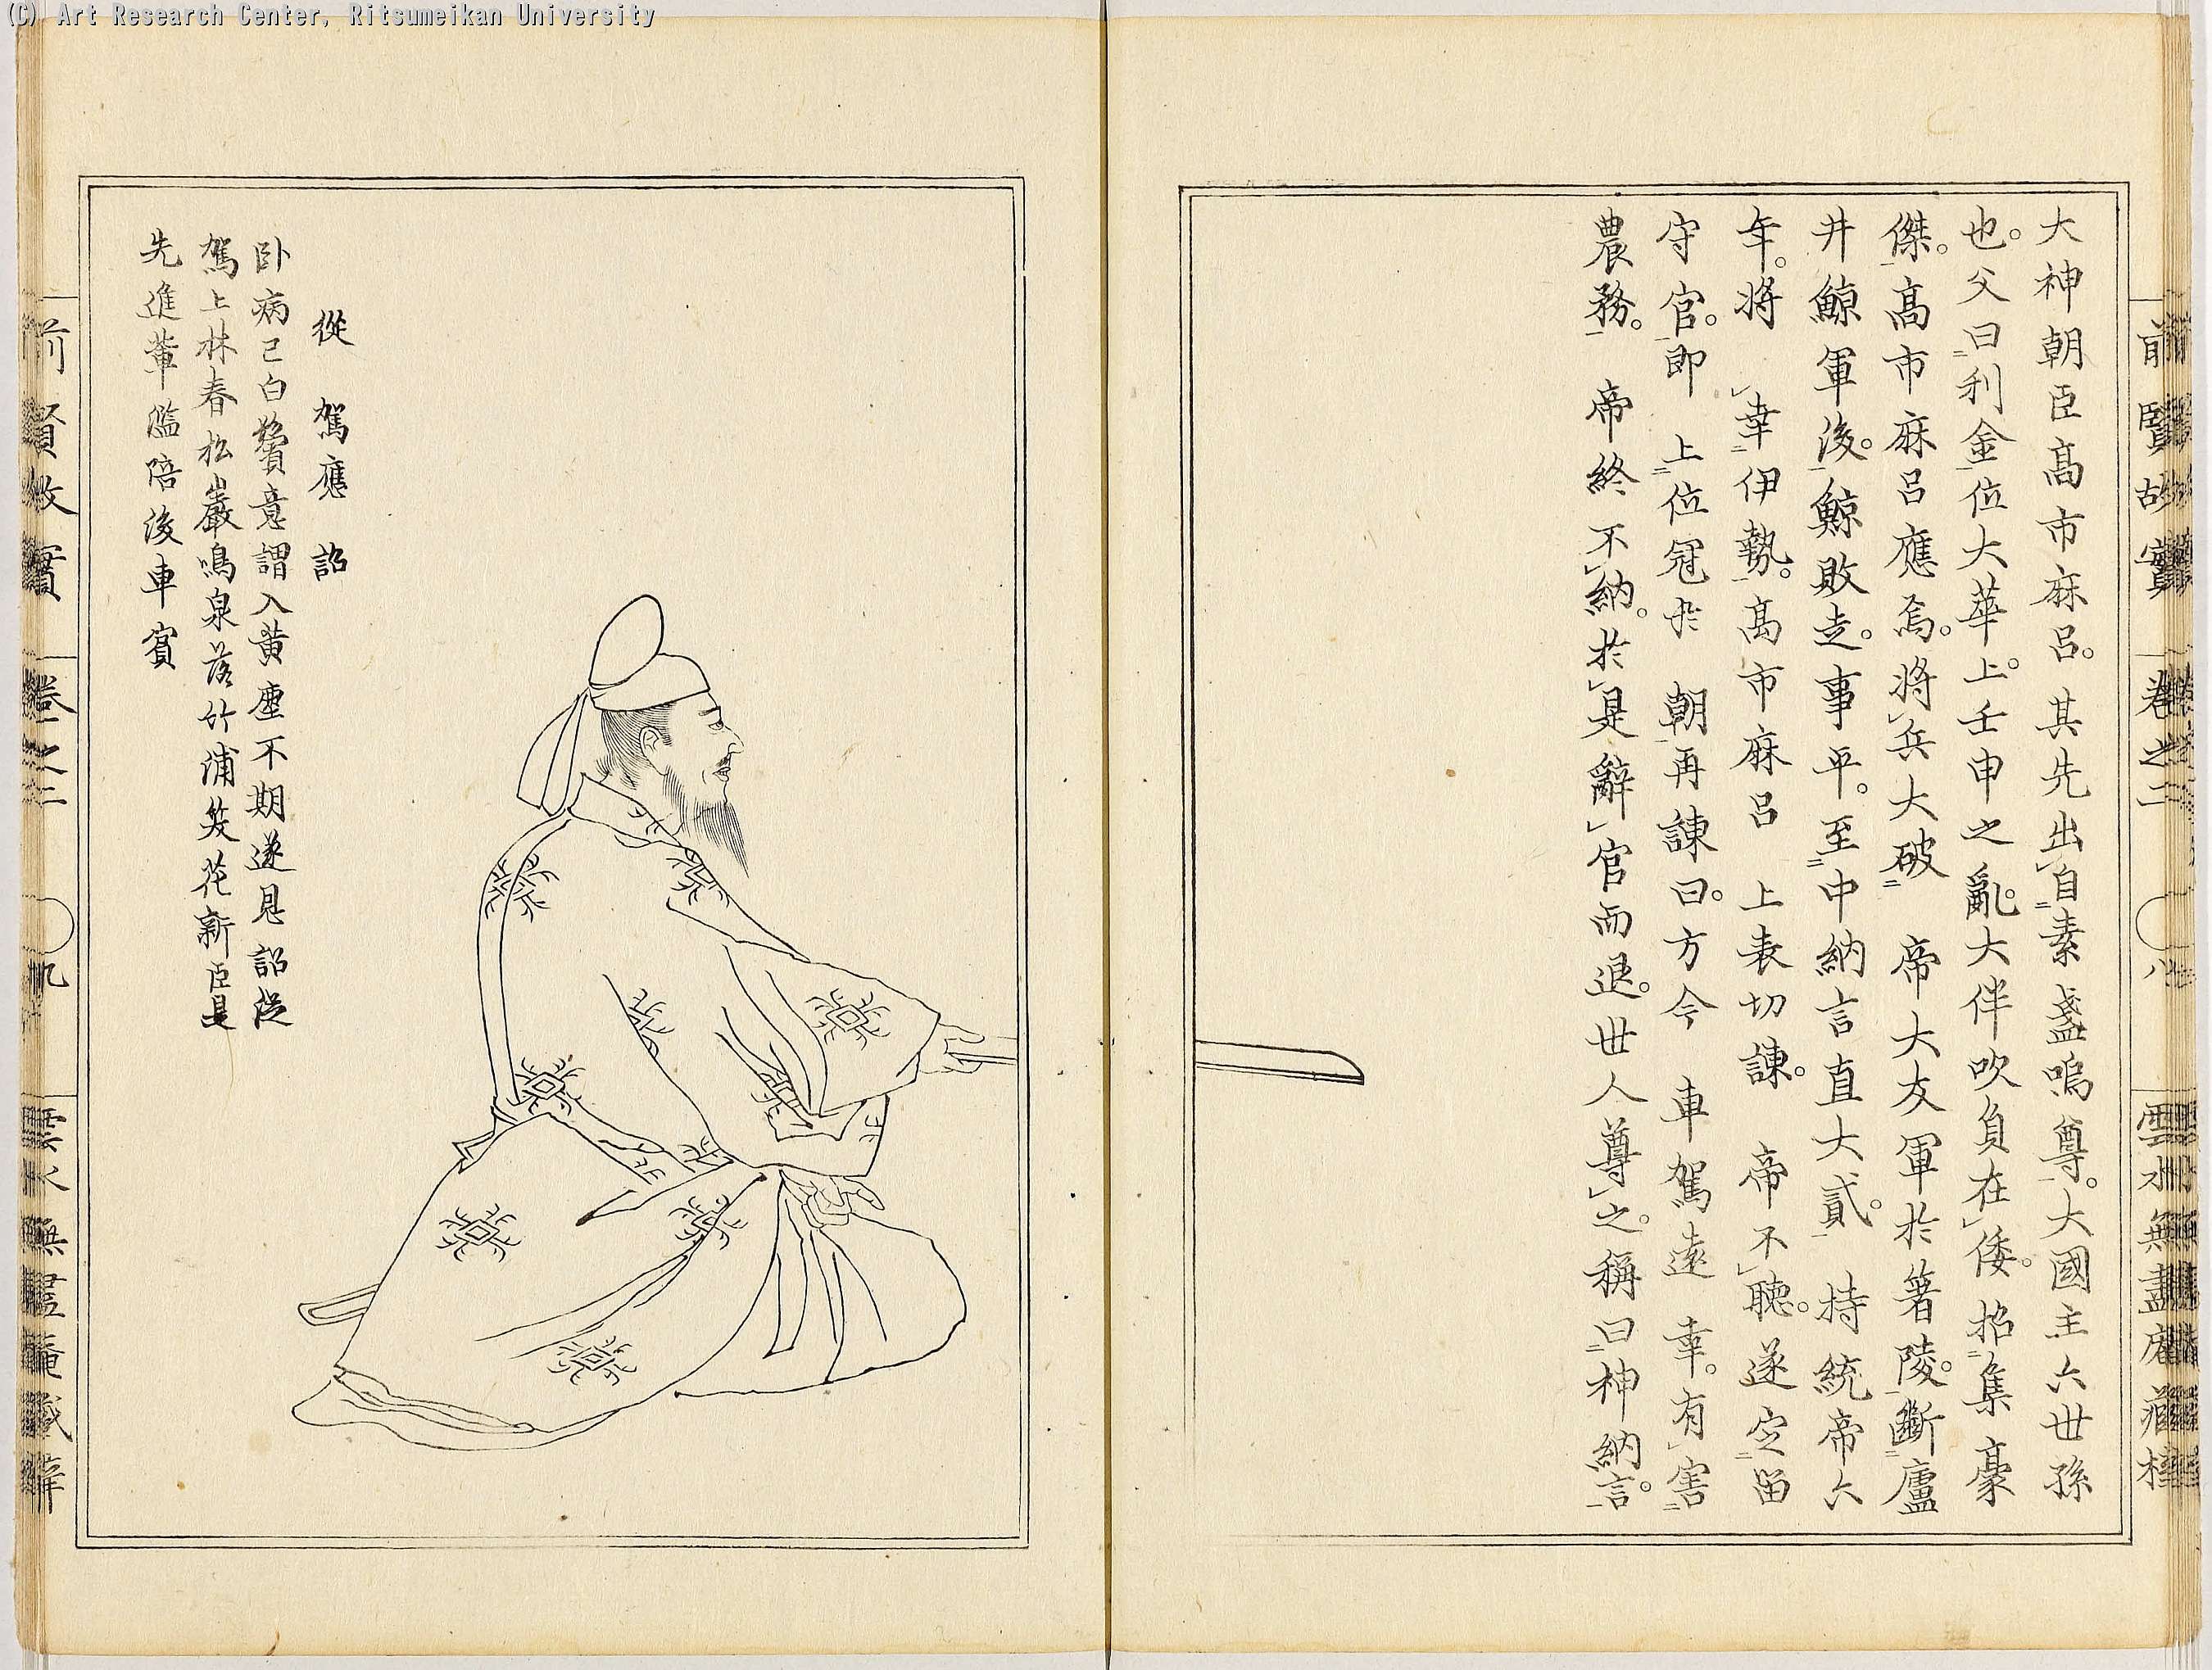 (C) Art Research Center, Ritsumeikan University
前賢故實 卷之二 八 雲水無盡庵藏梓
大神朝臣高市麻呂。其先出自素盞嗚尊。大國主六世孫
也。父曰利金位大華上。壬申之亂。大伴吹負在倭。招集豪
傑。高市麻呂應焉。將兵大破 帝大友軍於箸陵。斷廬
井鯨軍後。鯨敗走。事平。至中納言直大貳。 持統帝六
年。將 幸伊勢。高市麻呂 上表切諫。 帝不聽。遂定留
守官。即 上位冠於 朝再諫曰。方今 車駕遠 幸。有害
農務。 帝終不納。於是辭官而退。世人尊之。稱曰神納言。
從駕應詔
卧病已白鬢意謂入黃塵不期逐恩詔從
駕上林春松巖鳴泉落竹浦笑花新臣是
先進輩濫陪後車賓
前賢故實 卷之二 九 雲水無盡庵藏梓